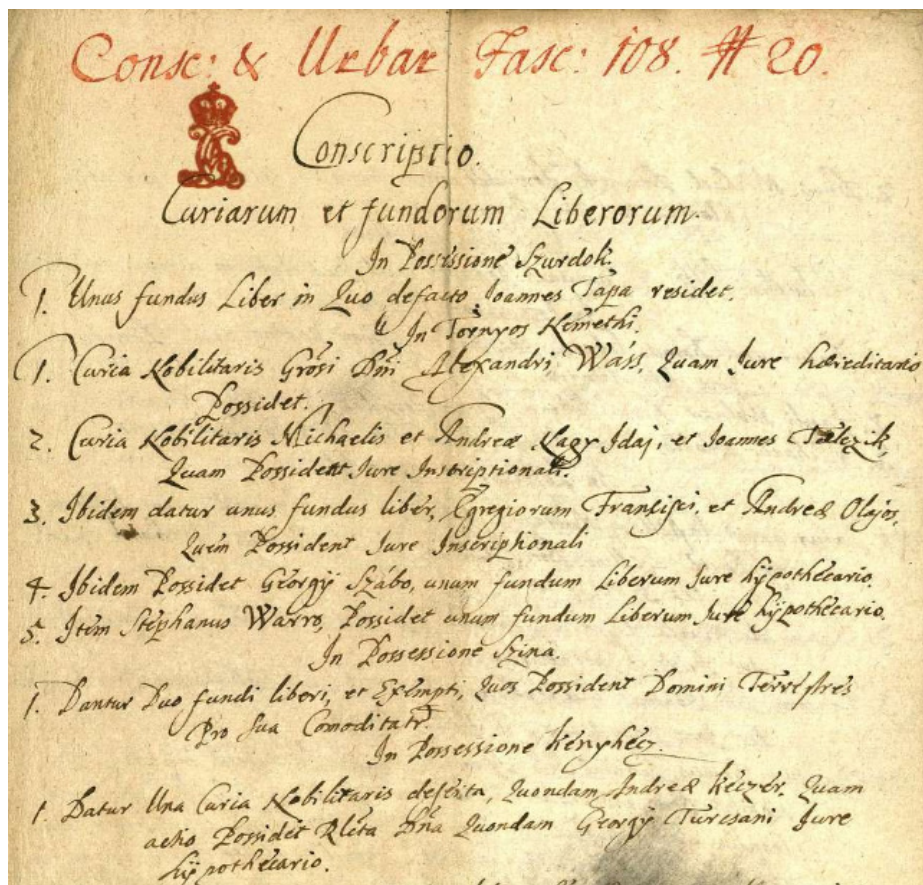 Consc: & Urbar Fasc: 108. # 20.
Conscriptio.
Curiarum et fundorum Liberorum.
In Possessione Szurdok.
1. Unus fundus Liber in Quo defacto Joannes Tapa residet.
In Tornyos Némethi.
1. Curia Nobilitaris Grosi Dni Alexandri Wáss, Quam Jure hæreditario
Possidet.
2. Curia Nobilitaris Michaelis et Andreæ Nagy Idaj, et Joannes
Quam Possident Jure Inscriptionali.
3. Ibidem datur unus fundus liber, Egregiorum Francisci, et Andreæ Olajos,
Quem Possident Jure Inscriptionali
4. Ibidem Possidet Georgÿ Szábo, unum fundum Liberum Jure hÿpothecario.
5. Item Stephanus Warro, Possidet unum fundum Liberum Jure hÿpothecario.
In Possessione Szina.
1. Dantur Duo fundi liberi, et Exempti, Quos Possident Domini Terrestres
Pro Sua Comoditate.
In Possessione Kenyhecz.
1. Datur Una Curia Nobilitaris deserta, Quondam Andreæ Keczer. Quam
Possidet Rlcta Dna Quondam Georgÿ Turcsani Jure
hÿpothecario.